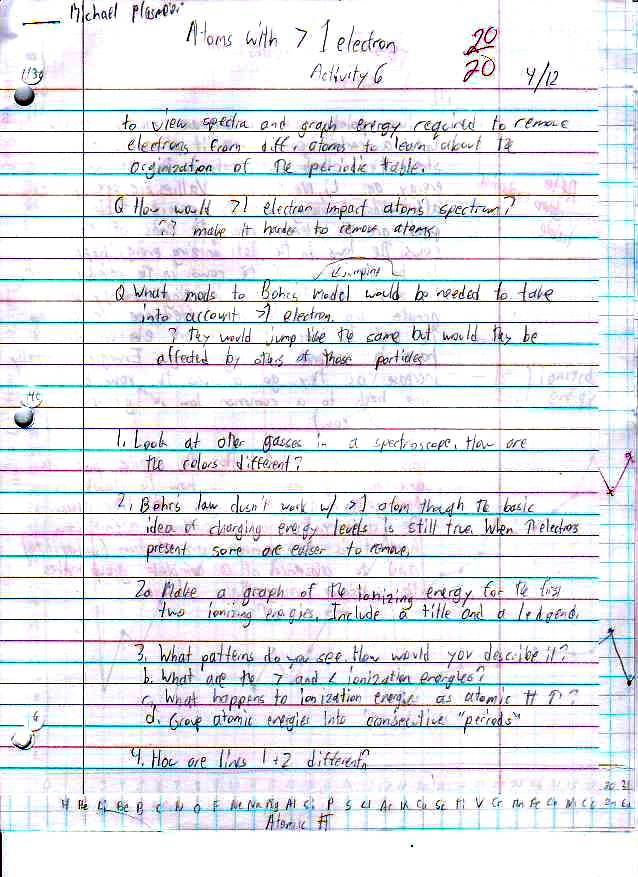 Michael
Atoms with > 1 electron
20
20
Activity 6
4/12
to view spectra and graph energy required to remove
electrons from diff. atoms to learn about the
orginization of the periodic table.
Q How would >1 electron impact atoms spectrum?
?? make it harder to remove atoms
(Jumping
Q What mods to Bohrs Model would be needed to take
into account >1 electron.
? They would jump like the same but would they be
affected by others of those particles
1. Look at other gasses in a spectroscope. How are
the colors different?
2. Bohrs law dusn't work w/ >1 atom though the basic
idea of changing energy levels is still true. When ↑ electros
present some are eaiser to remove.
2a Make a graph of the ionizing energy for the first
two ionizing energies. Include a title and a ledgend.
3. What patterns do you see. How would you describe it?
b. What are the > and < ionization energies?
c. What happens to ionization energie as atomic # ↑?
d. Group atomic energies into consecutive "periods"
4. How are lines 1+2 different?
20 21
H He Li Be B C N O F Ne Na Mg Al Si P S Cl Ar K Ca Sc Ti V Cr Mn Fe Co Ni Cu Zn Ga
Atomic #